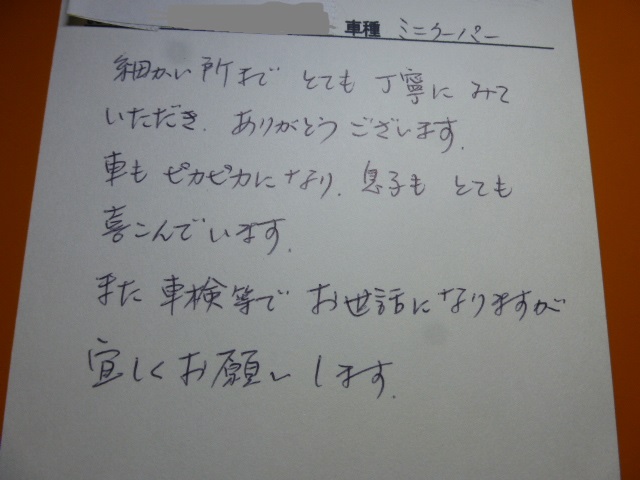 車種 ミニクーパー
細かい所まで とても 丁寧に みて
いただき、ありがとうございます。
車も ピカピカになり、息子も とても
喜こんでいます。
また 車検等で お世話になりますが
宜しくお願いします。